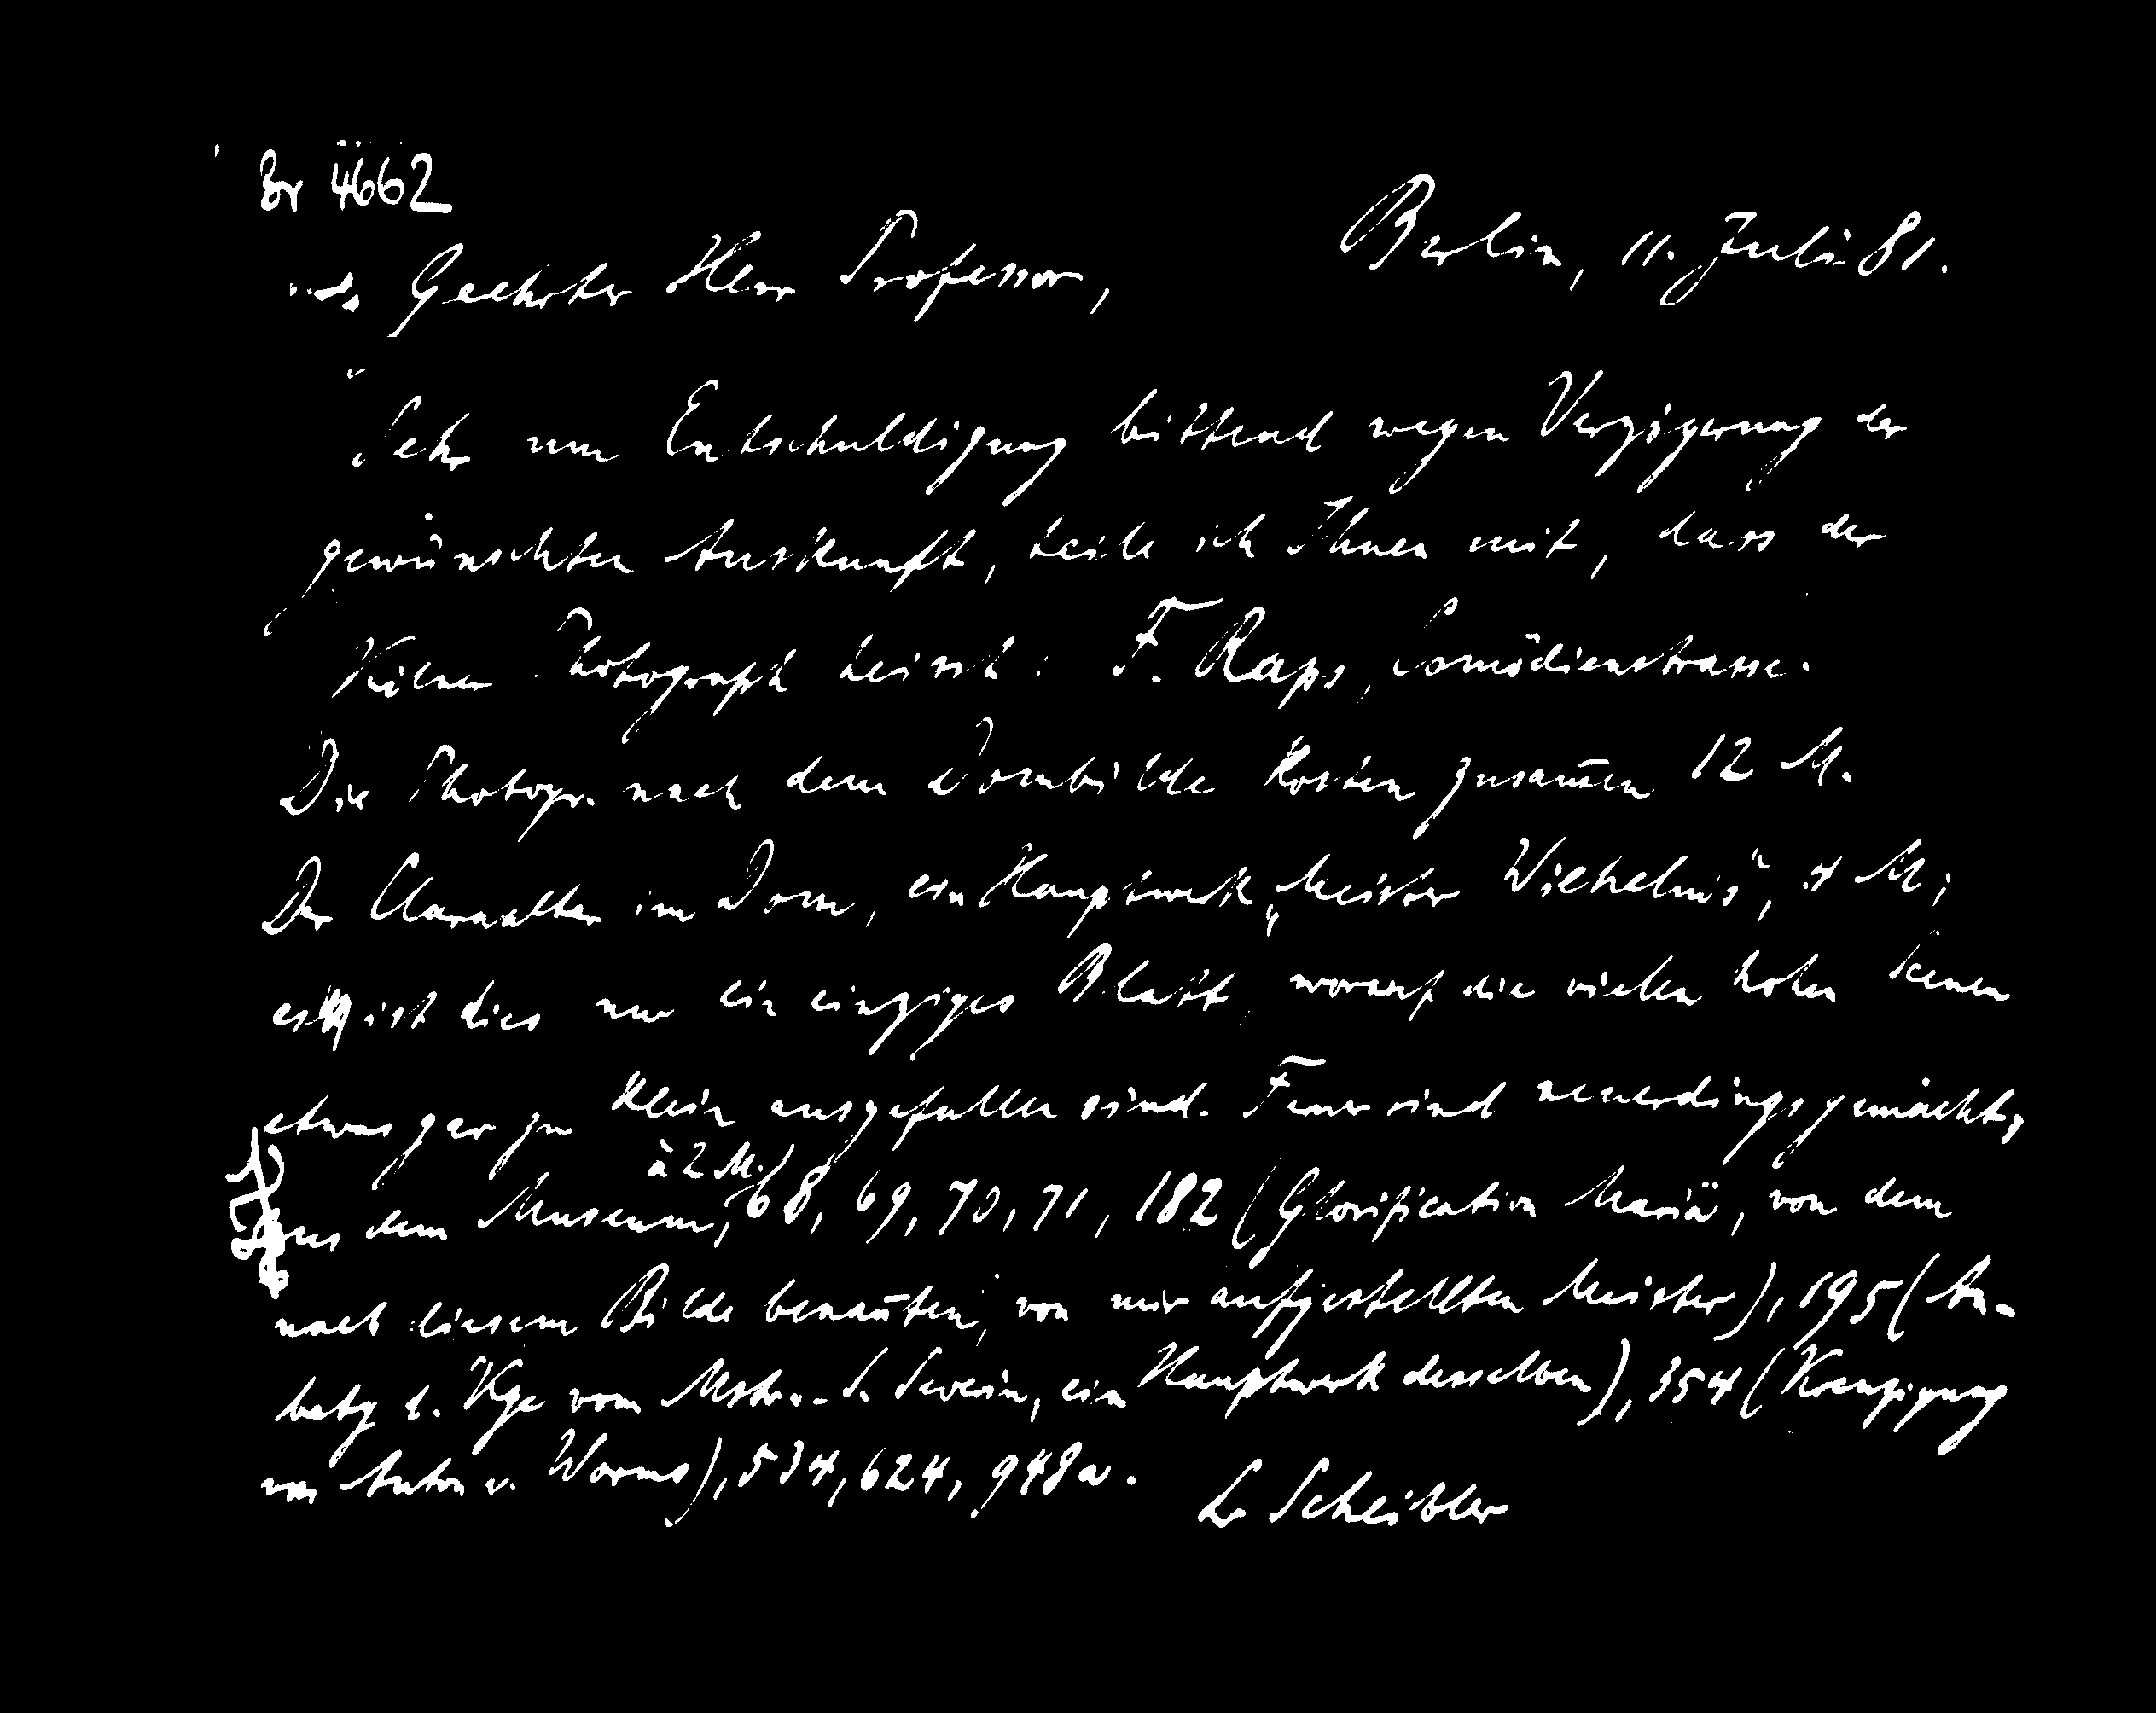 Br 4662
Berlin, 11. Juli 81.
Geehrter Herr Professor,
Sehr um Entschuldigung bittend wegen Verzögerung der
gewünschten Auskunft, teile ich Ihnen mit, dass der
Kölner Photograph heisst: F. Raps, Comödienstrasse.
Die Photogr. nach dem Dombilde kosten zusam̄en 12 M.
Der Claraaltar im Dom, ein Hauptwerk „Meister Wilhelms“, 4 M;
es ist dies nur ein einziges Blatt, worauf die vielen hohen Scenen
etwas gar zu klein ausgefallen sind. Ferner sind neuerdings gemacht,
à 2 M.
aus dem Museum, 68, 69, 70, 71, 182 (Glorification Mariä, von dem
nach diesem Bilde benan̄ten, von mir aufgestellten Meister), 195 (An-
betg d. Kge vom Mstr. v. S. Severin, ein Hauptwerk desselben), 354 (Kreuzigung
von Anton v. Worms), 534, 624, 948a.
L Scheibler